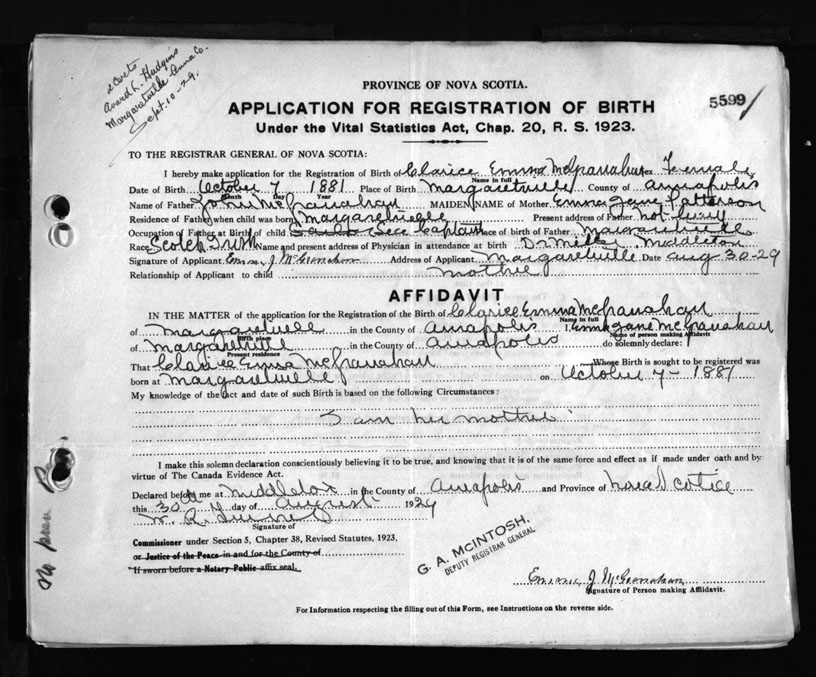 2 Certs
Averd L. Hudgins
Margaretville Anna Co.
Sept. 10-29.
PROVINCE OF NOVA SCOTIA.
APPLICATION FOR REGISTRATION OF BIRTH
5599
Under the Vital Statistics Act, Chap. 20, R. S. 1923.
TO THE REGISTRAR GENERAL OF NOVA SCOTIA:
I hereby make application for the Registration of Birth of Clarice Emma McGranahan Sex Female
Name in full
Date of Birth October 7 1881 Place of Birth Margaretville County of Annapolis
Month Day Year
Name of Father John McGranahan MAIDEN NAME of Mother Emma Jane Patterson
Residence of Father when child was born Margaretville Present address of Father not living
Occupation of Father at Birth of child Sea Captain Place of birth of Father Margaretville
Race Scotch Irish Name and present address of Physician in attendance at birth Dr Miller Middleton
Signature of Applicant Emma J McGranahan Address of Applicant Margaretville Date Aug 30-29
Relationship of Applicant to child mother
AFFIDAVIT
IN THE MATTER of the application for the Registration of the Birth of Clarice Emma McGranahan
Name in full
of Margaretville in the County of Annapolis I Emma Jane McGranahan
Birth place Name of person making Affidavit
of Margaretville in the County of Annapolis do solemnly declare:
Present residence
That Clarice Emma McGranahan Whose Birth is sought to be registered was
born at Margaretville on October 7- 1881
My knowledge of the fact and date of such Birth is based on the following Circumstances:
I am her mother
I make this solemn declaration conscientiously believing it to be true, and knowing that it is of the same force and effect as if made under oath and by
virtue of The Canada Evidence Act.
Declared before me at Middleton in the County of Annapolis and Province of Nova Scotia
this 30th day of August 1929
Signature of
Commissioner under Section 5, Chapter 38, Revised Statutes, 1923,
or Justice of the Peace in and for the County of
"If sworn before a Notary Public affix seal.
G. A. McINTOSH.
DEPUTY REGISTRAR GENERAL
Emma J McGranahan
Signature of Person making Affidavit.
For Information respecting the filling out of this Form, see Instructions on the reverse side.